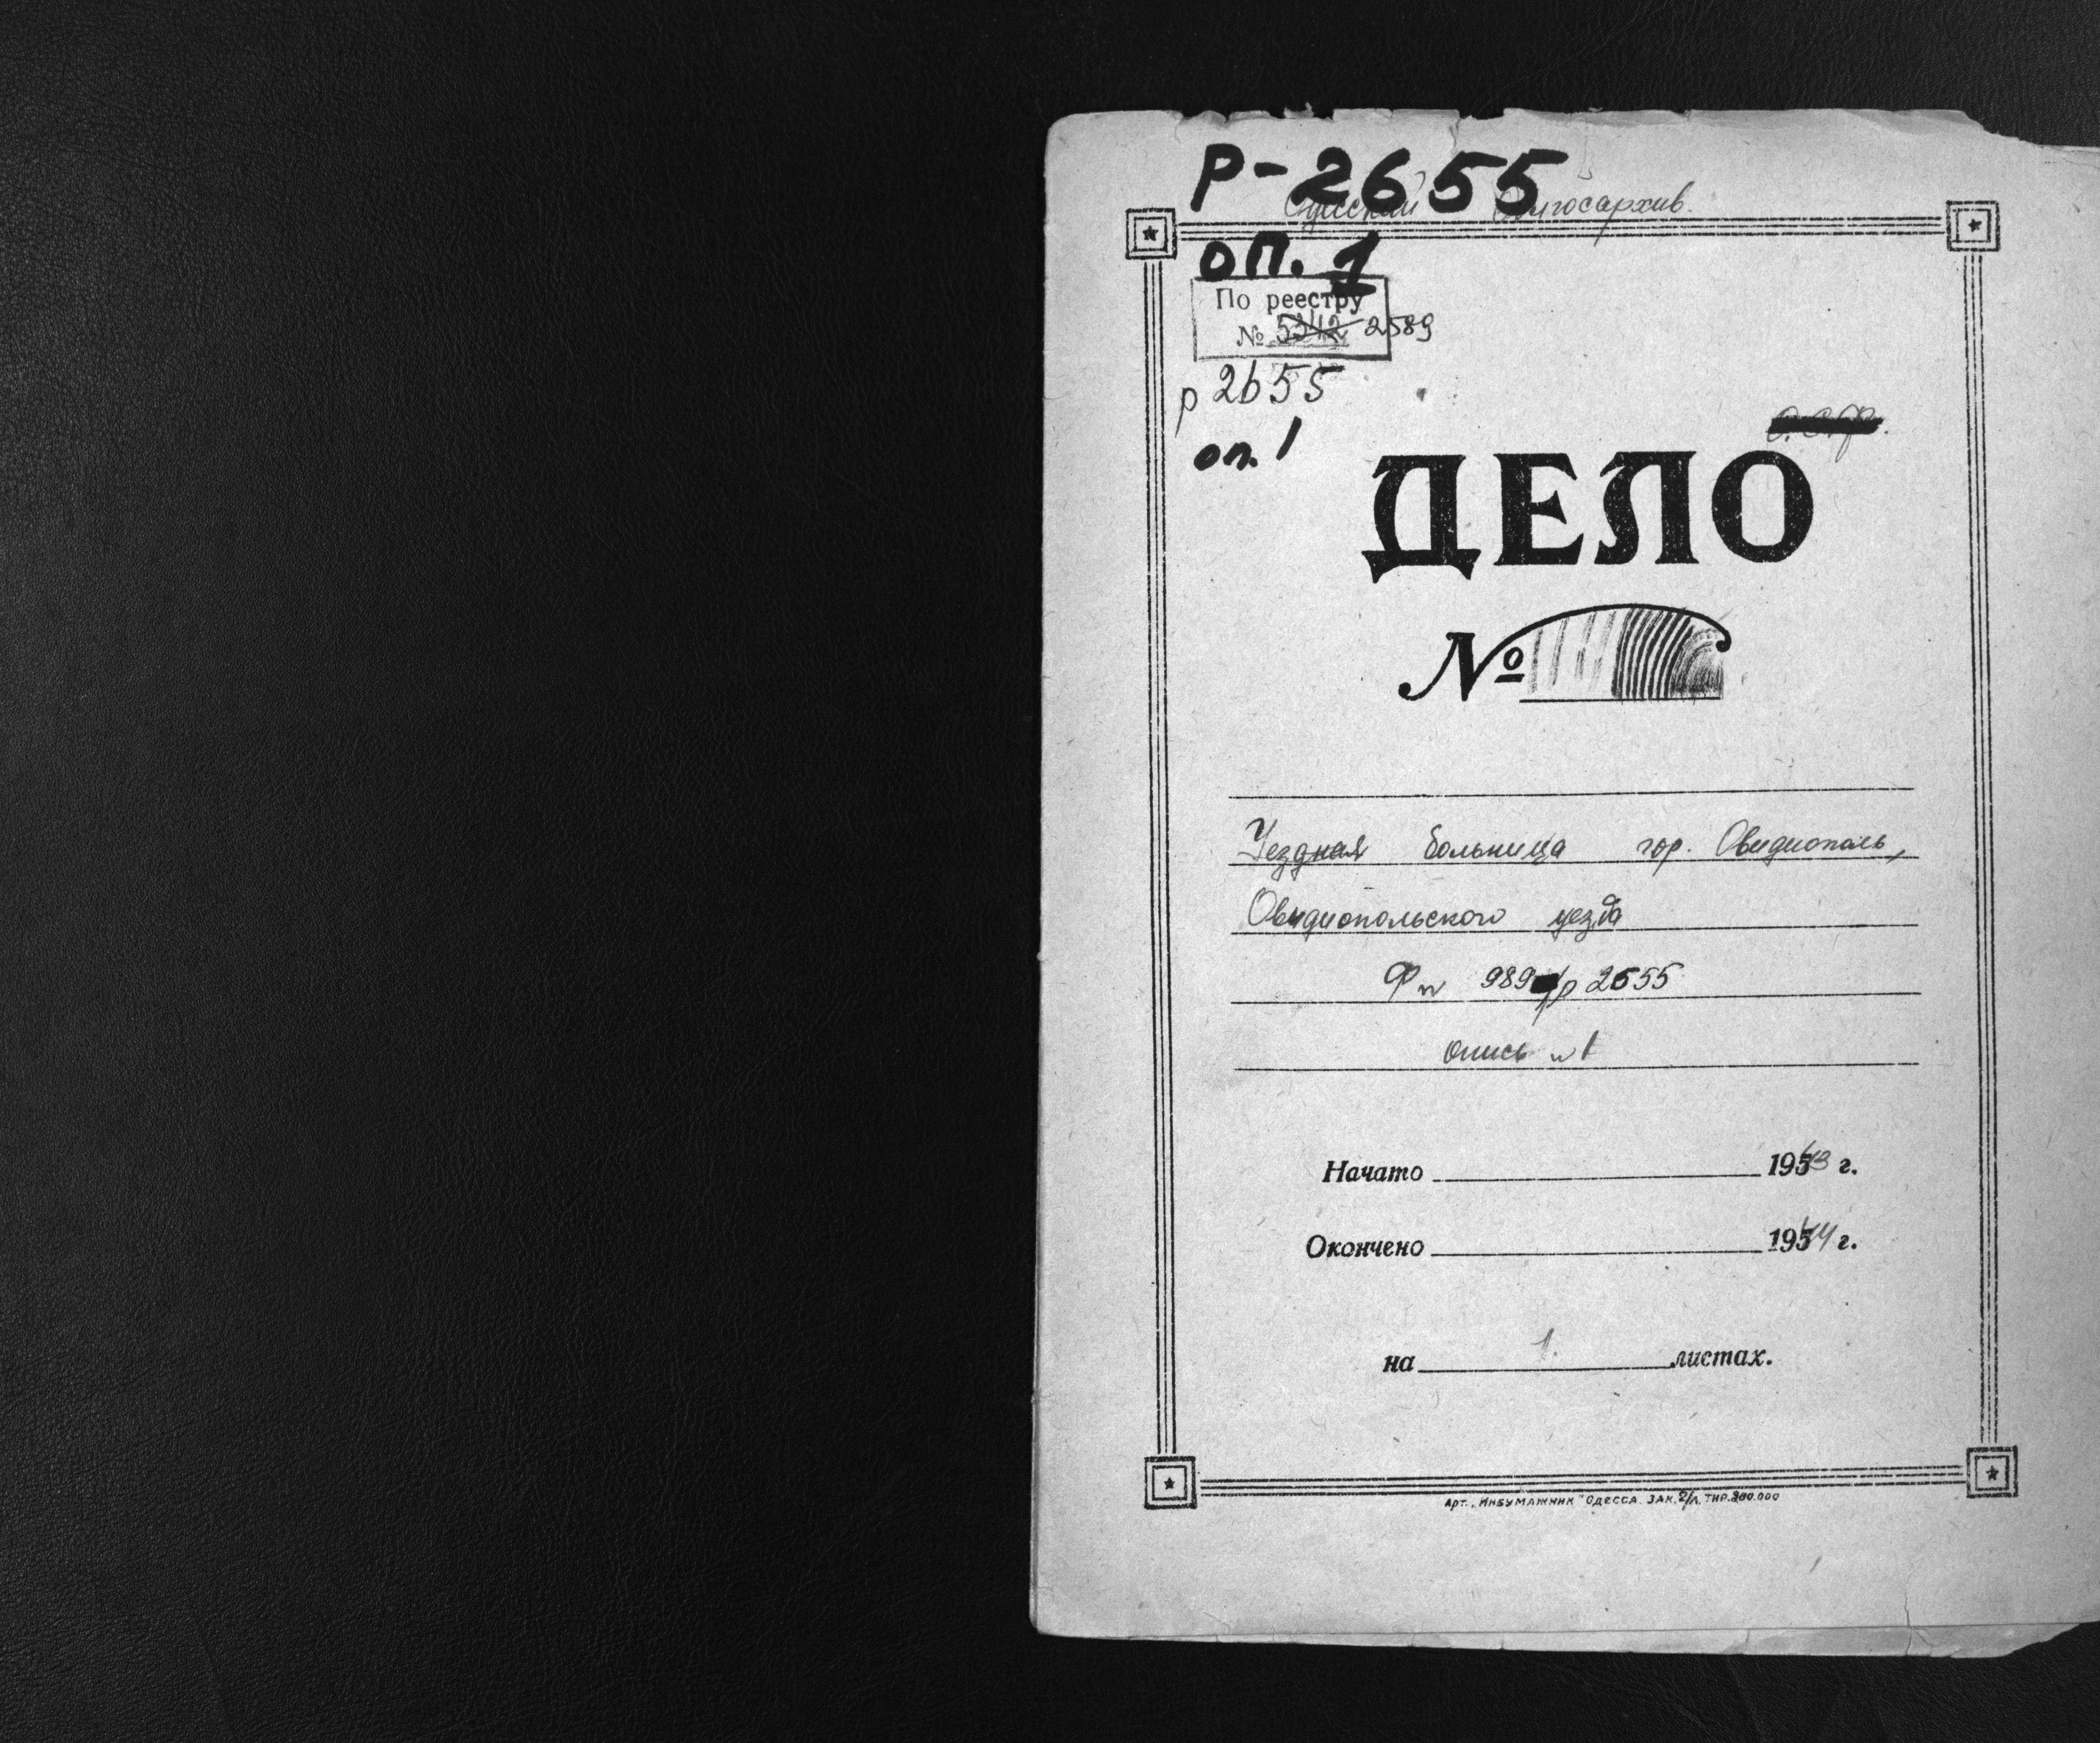 Р-2655
Одесский Облгосархив.
оп. 1
По реестру
№ 5342 2589
р 2655
оп. 1
ДЕЛО
№
Уездная больница гор. Овидиополь,
Овидиопольского уезда
Ф № 989 р 2655
опись № 1
Начато 1943 г.
Окончено 1944 г.
на 1. листах.
Арт. „Инбумажник" Одесса. Зак. 2/л. Тир. 200.000